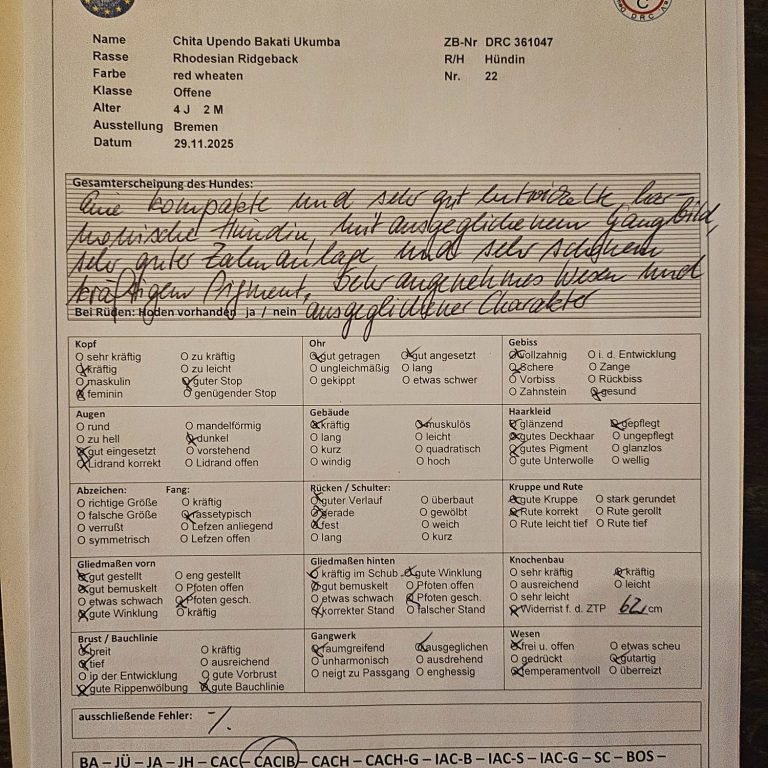 DRC
Name Chita Upendo Bakati Ukumba ZB-Nr DRC 361047
Rasse Rhodesian Ridgeback R/H Hündin
Farbe red wheaten Nr. 22
Klasse Offene
Alter 4 J 2 M
Ausstellung Bremen
Datum 29.11.2025
Gesamterscheinung des Hundes:
Eine kompakte und sehr gut entwickelte, har-
monische Hündin, mit ausgeglichenem Gangbild,
sehr guter Zahnanlage und sehr schönem
kräftigem Pigment. Sehr angenehmes Wesen und
Bei Rüden: Hoden vorhanden ja / nein ausgeglichener Charakter
Kopf Ohr Gebiss
O sehr kräftig O zu kräftig O gut getragen O gut angesetzt O vollzahnig O i. d. Entwicklung
O kräftig O zu leicht O ungleichmäßig O lang O Schere O Zange
O maskulin O guter Stop O gekippt O etwas schwer O Vorbiss O Rückbiss
O feminin O genügender Stop O Zahnstein O gesund
Augen Gebäude Haarkleid
O rund O mandelförmig O kräftig O muskulös O glänzend O gepflegt
O zu hell O dunkel O lang O leicht O gutes Deckhaar O ungepflegt
O gut eingesetzt O vorstehend O kurz O quadratisch O gutes Pigment O glanzlos
O Lidrand korrekt O Lidrand offen O windig O hoch O gute Unterwolle O wellig
Abzeichen: Fang: Rücken / Schulter: Kruppe und Rute
O richtige Größe O kräftig O guter Verlauf O überbaut O gute Kruppe O stark gerundet
O falsche Größe O rassetypisch O gerade O gewölbt O Rute korrekt O Rute gerollt
O verrußt O Lefzen anliegend O fest O weich O Rute leicht tief O Rute tief
O symmetrisch O Lefzen offen O lang O kurz
Gliedmaßen vorn Gliedmaßen hinten Knochenbau
O gut gestellt O eng gestellt O kräftig im Schub O gute Winklung O sehr kräftig O kräftig
O gut bemuskelt O Pfoten offen O gut bemuskelt O Pfoten offen O ausreichend O leicht
O etwas schwach O Pfoten gesch. O etwas schwach O Pfoten gesch. O sehr leicht
O gute Winklung O kräftig O korrekter Stand O falscher Stand O Widerrist f. d. ZTP 62 cm
Brust / Bauchlinie Gangwerk Wesen
O breit O kräftig O raumgreifend O ausgeglichen O frei u. offen O etwas scheu
O tief O ausreichend O unharmonisch O ausdrehend O gedrückt O gutartig
O in der Entwicklung O gute Vorbrust O neigt zu Passgang O enghessig O temperamentvoll O überreizt
O gute Rippenwölbung O gute Bauchlinie
ausschließende Fehler: -/.
BA – JÜ – JA – JH – CAC – CACIB – CACH – CACH-G – IAC-B – IAC-S – IAC-G – SC – BOS –